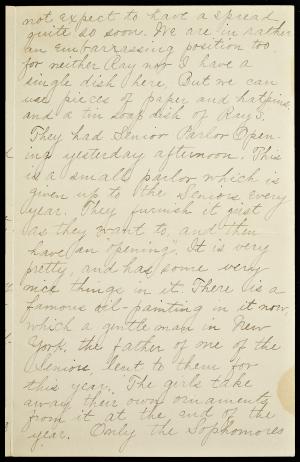 not expect to have a spread
quite so soon. We are in rather
an embarrassing position too
for neither Ray nor I have a
single dish here. But we can
use pieces of paper and hatpins,
and a tin soap dish of Ray's.
They had Senior Parlor Open-
ing yesterday afternoon. This
is a small parlor which is
given up to the Seniors every
year. They furnish it just
as they want to, and then
have an "opening". It is very
pretty, and has some very
nice things in it. There is a
famous oil-painting in it now,
which a gentleman in New
York, the father of one of the
Seniors, lent to them for
this year. The girls take
away their own ornaments
from it at the end of the
year. Only the Sophomores